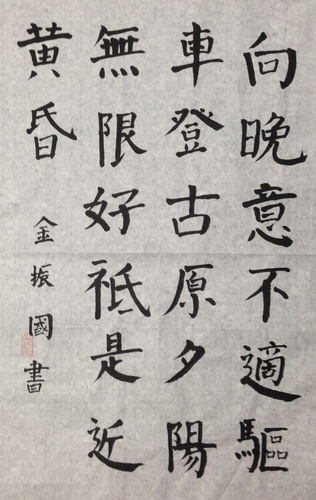 向晚意不適驅
車登古原夕陽
無限好祗是近
黄昏
金振國書